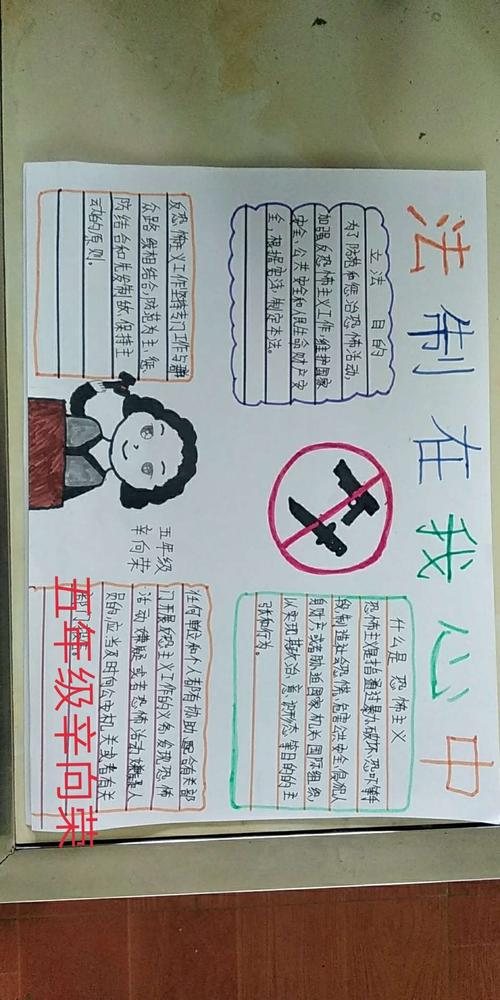 法制在我心中
立法目的
为了防范和惩治恐怖活动,
加强反恐怖主义工作,维护国家
安全、公共安全和人民生命财产安
全,根据宪法,制定本法。
什么是恐怖主义
恐怖主义是指通过暴力、破坏、恐吓等手
段,制造社会恐慌、危害公共安全、侵犯人
身财产,或者胁迫国家机关、国际组织,
以实现其政治、意识形态等目的的主
张和行为。
反恐怖主义工作坚持专门工作与群
众路线相结合,防范为主、惩
防结合和先发制敌、保持主
动的原则。
五年级
辛向荣
任何单位和个人都有协助、配合有关部
门开展反恐主义工作的义务,发现恐怖
活动嫌疑或者恐怖活动嫌疑人
员的,应当及时向公安机关或者有关
五年级辛向荣